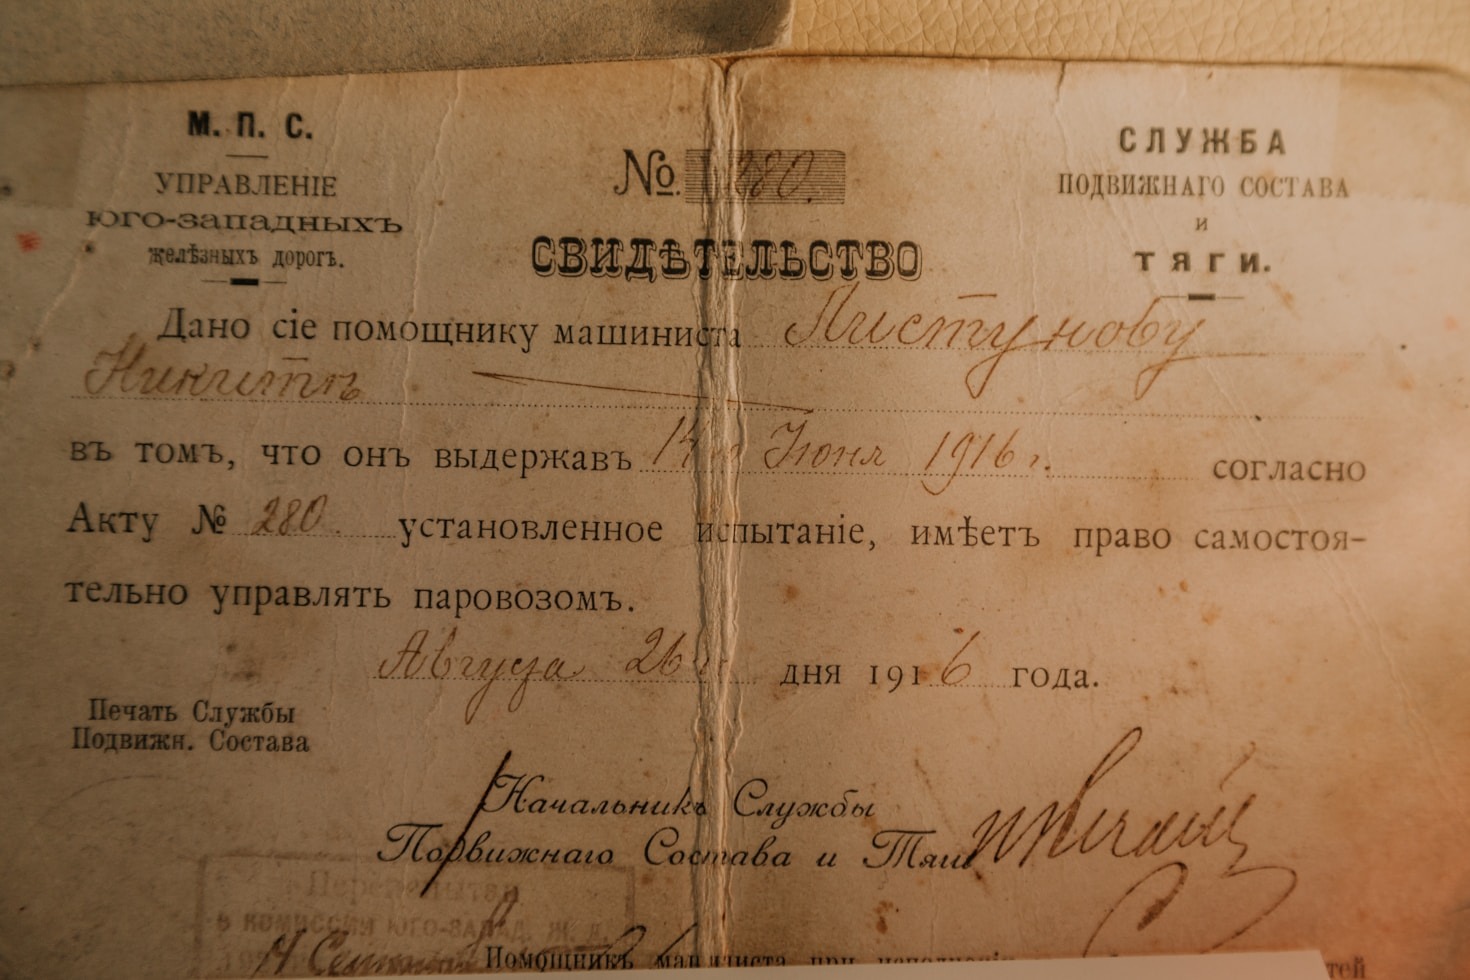 М. П. С.
УПРАВЛЕНІЕ
ЮГО-ЗАПАДНЫХЪ
желѣзныхъ дорогъ.
№ 280.
СВИДѢТЕЛЬСТВО
СЛУЖБА
ПОДВИЖНАГО СОСТАВА
и
ТЯГИ.
Дано сіе помощнику машиниста Листунову
Никитѣ
въ томъ, что онъ выдержавъ 14го Іюня 1916 г. согласно
Акту № 280. установленное испытаніе, имѣетъ право самостоя-
тельно управлять паровозомъ.
Августа 26 дня 1916 года.
Печать Службы
Подвижн. Состава
Начальникъ Службы
Подвижнаго Состава и Тяги
в комиссии Юго-Запад. Ж. д.
Помощникъ машиниста при